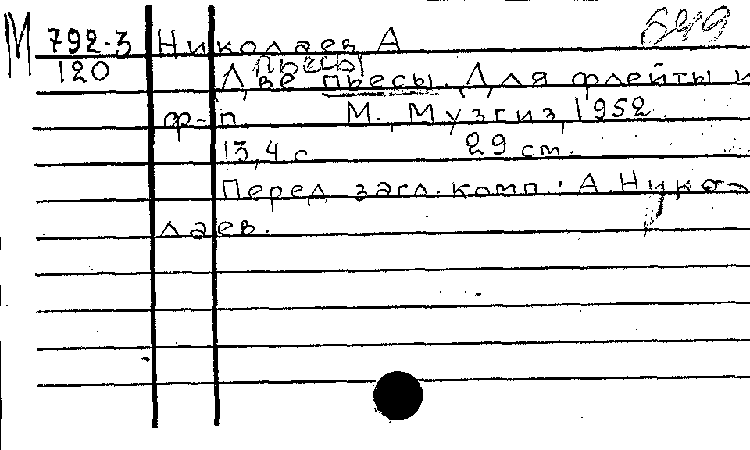 М 792-3 Николаев А
649
120 пьесы
Две пьесы. Для флейты и
ф-п М., Музгиз, 1952.
13,4 с 29 см.
Перед загл. комп: А. Нико-
лаев.